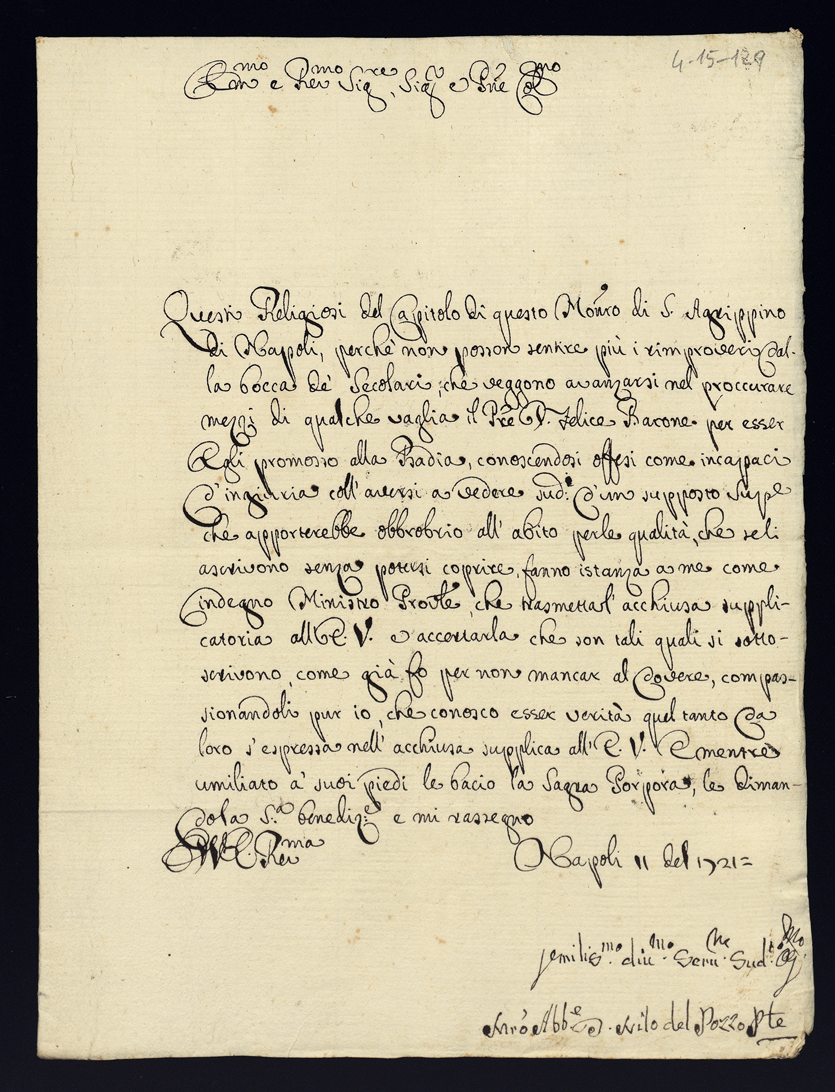 4-15-129
Em.mo e Rev.mo Sig.re, Sig.r e P.rne Col.mo
Questi Religiosi del Capitolo di questo Mon.ro di S. Agrippino
di Napoli, perche non posson sentire più i rimproveri dal-
la bocca de' Secolari, che veggono avanzarsi nel proccurare
mezzi di qualche vaglia il P.re D. Felice Barone per esser
Egli promosso alla Badia, conoscendosi offesi come incapaci
d'ingiuria coll'aversi a vedere sud.i d'un supposto Sup.e
che apporterebbe obbrobrio all'abito per le qualità, che se li
ascrivono senza potersi coprire, fanno istanza a me come
indegno Ministro Prov.le, che trasmetta l'acchiusa suppli-
catoria all'E. V. e accertarla che son tali quali si sotto-
scrivono, come già fo per non mancar al dovere, compas-
sionandoli pur io, che conosco esser verità quel tanto da
loro s'espressa nell'acchiusa supplica all'E. V. E mentre
umiliato a' suoi piedi le bacio la Sagra Porpora, le diman-
do la S.a benediz.e e mi rassegno
Di V. E. Rev.ma
Napoli 11 del 1721=
umilis.mo div.mo Serv.re Sud.o
Abb.e D. Nilo del Pozzo P.le